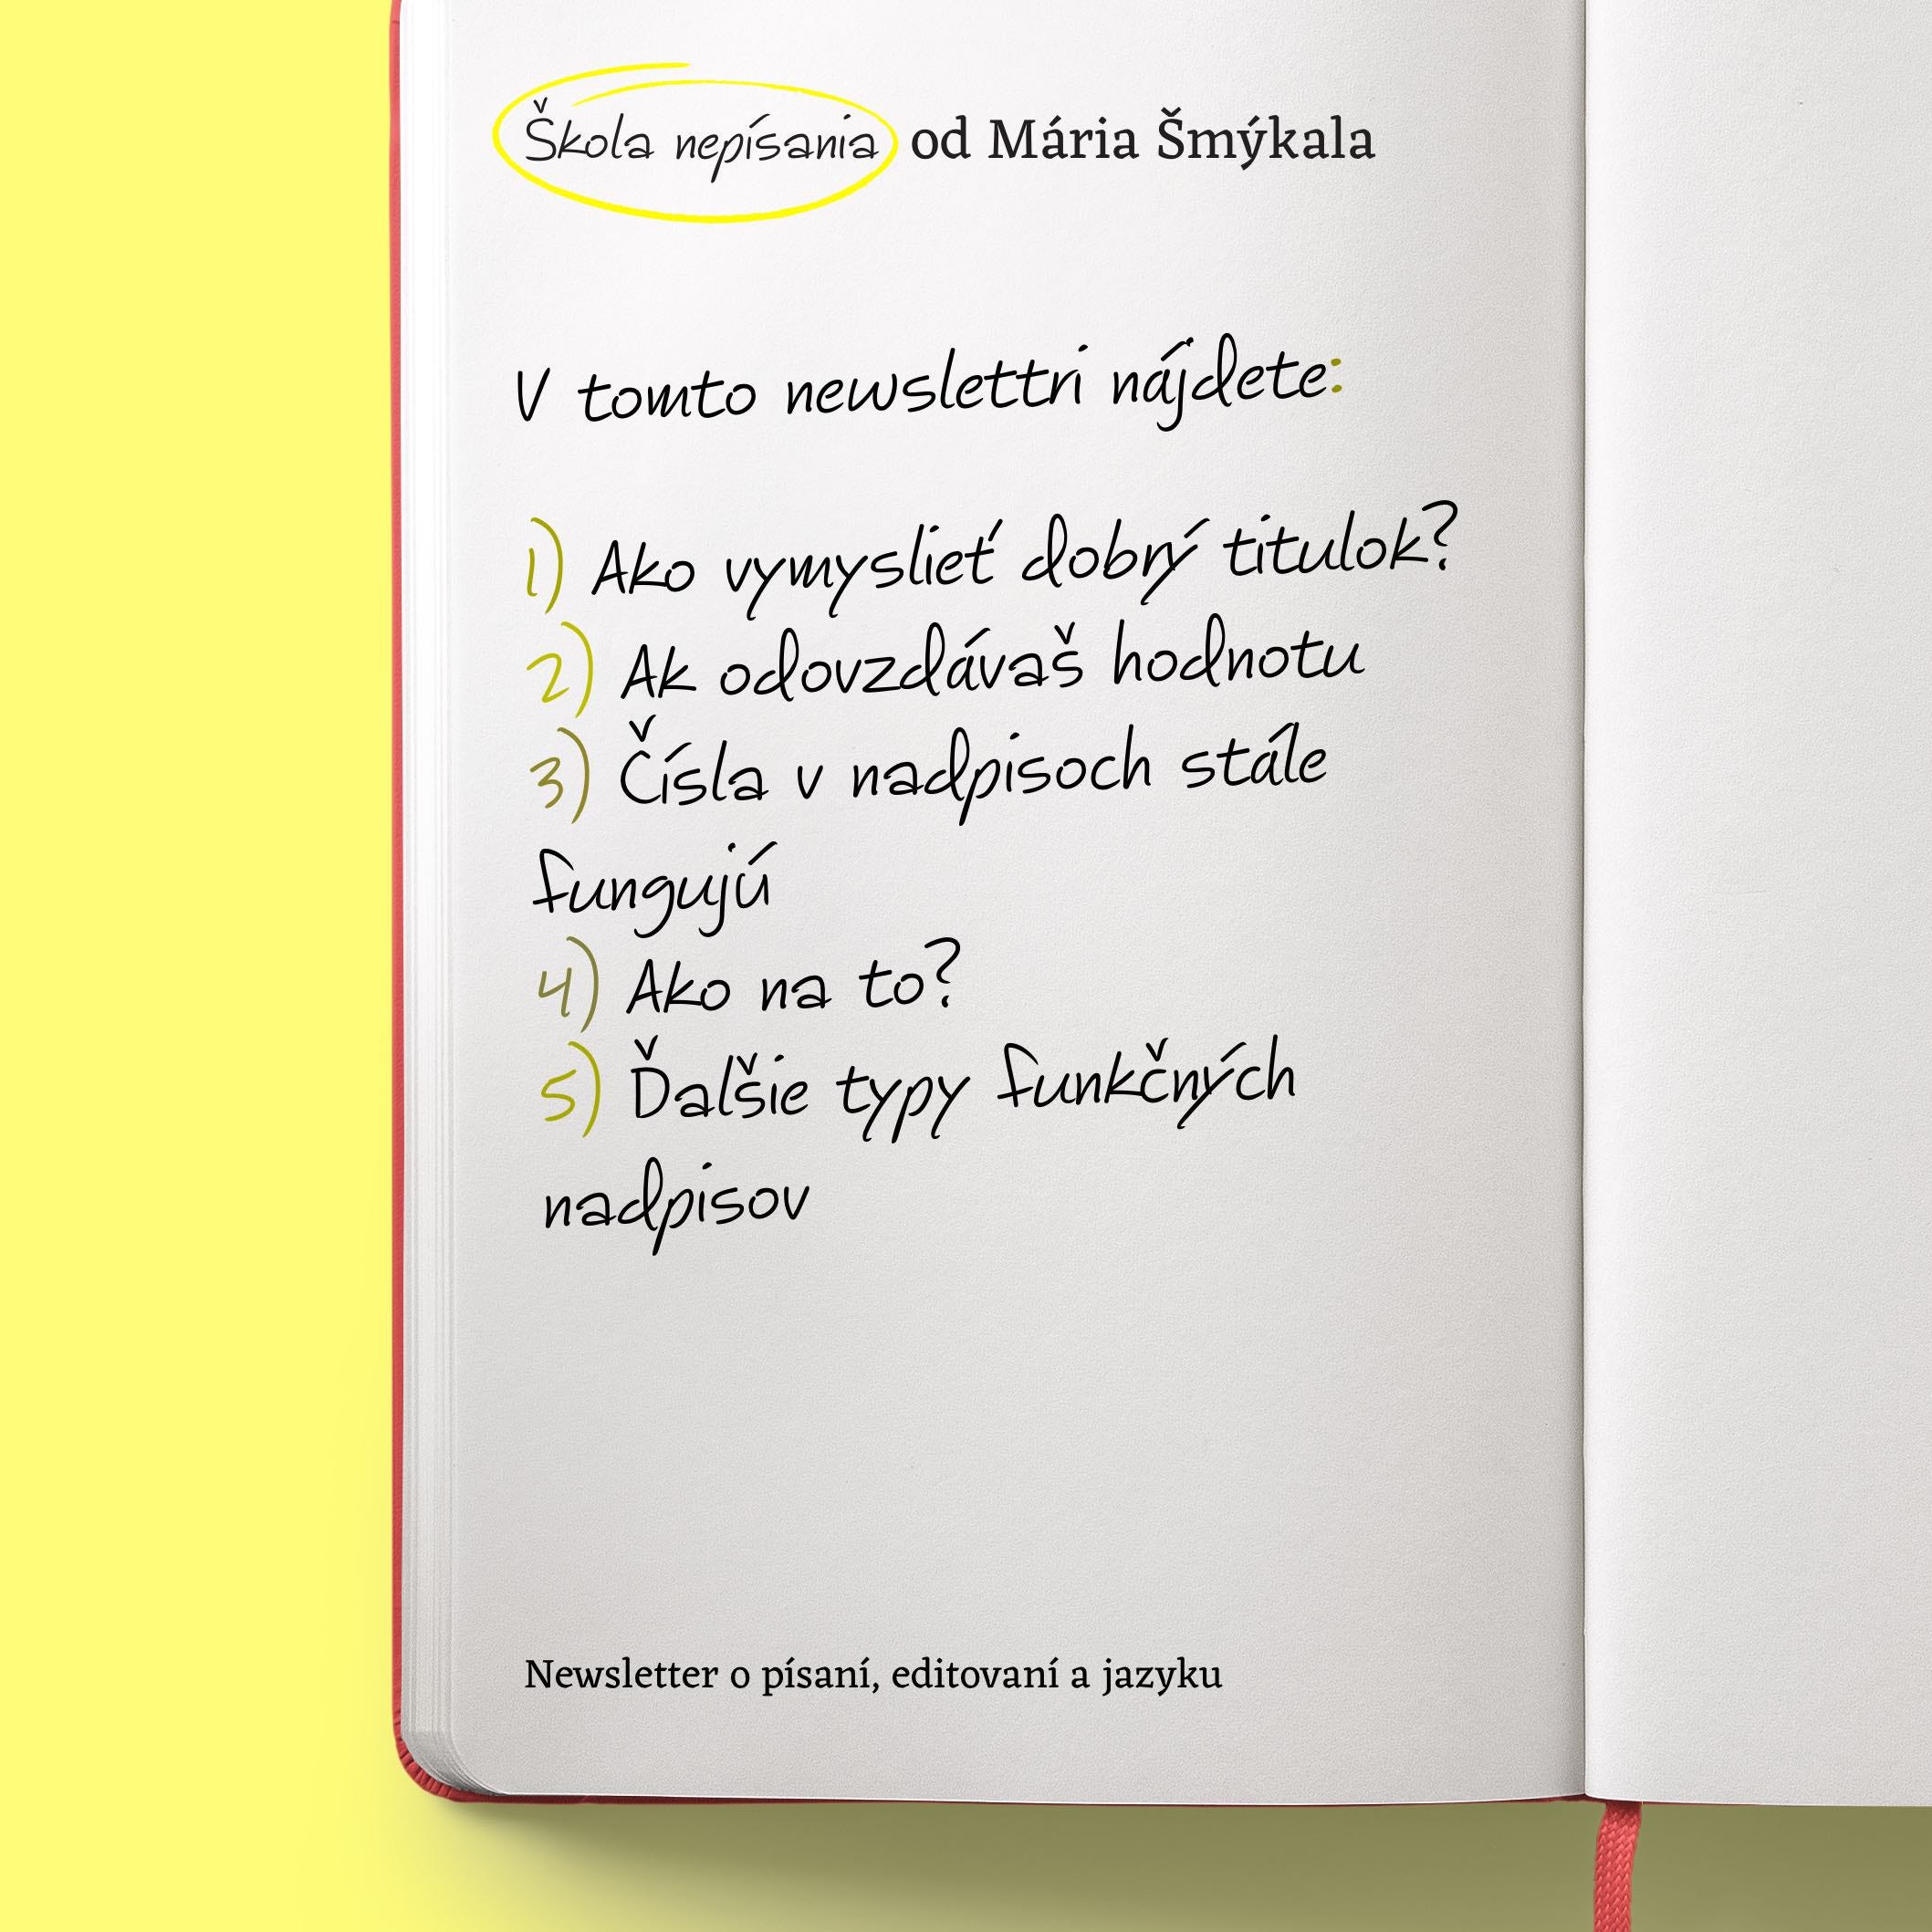 Škola nepísania od Mária Šmýkala
V tomto newslettri nájdete:
1) Ako vymyslieť dobrý titulok?
2) Ak odovzdávaš hodnotu
3) Čísla v nadpisoch stále
fungujú
4) Ako na to?
5) Ďalšie typy funkčných
nadpisov
Newsletter o písaní, editovaní a jazyku